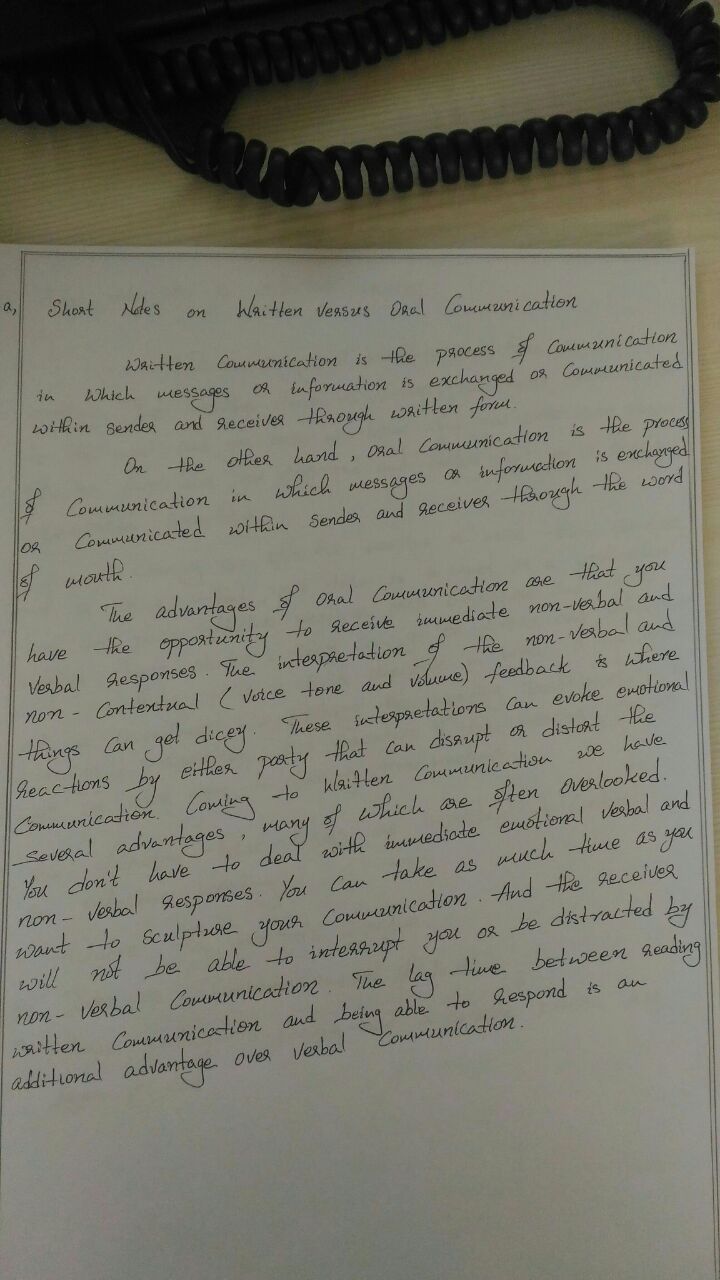 a, Short Notes on Written Versus Oral Communication
Written Communication is the process of Communication
in which messages or information is exchanged or Communicated
within sender and receiver through written form.
On the other hand, oral Communication is the process
of Communication in which messages or information is exchanged
or Communicated within sender and receiver through the word
of mouth.
The advantages of oral Communication are that you
have the opportunity to receive immediate non-verbal and
verbal responses. The interpretation of the non-verbal and
non-Contextual (voice tone and volume) feedback is where
things can get dicey. These interpretations can evoke emotional
reactions by either party that can disrupt or distort the
Communication. Coming to Written Communication we have
several advantages, many of which are often overlooked.
You don't have to deal with immediate emotional verbal and
non-verbal responses. You can take as much time as you
want to sculpture your Communication. And the receiver
will not be able to interrupt you or be distracted by
non-verbal Communication. The lag time between reading
written Communication and being able to respond is an
additional advantage over verbal Communication.